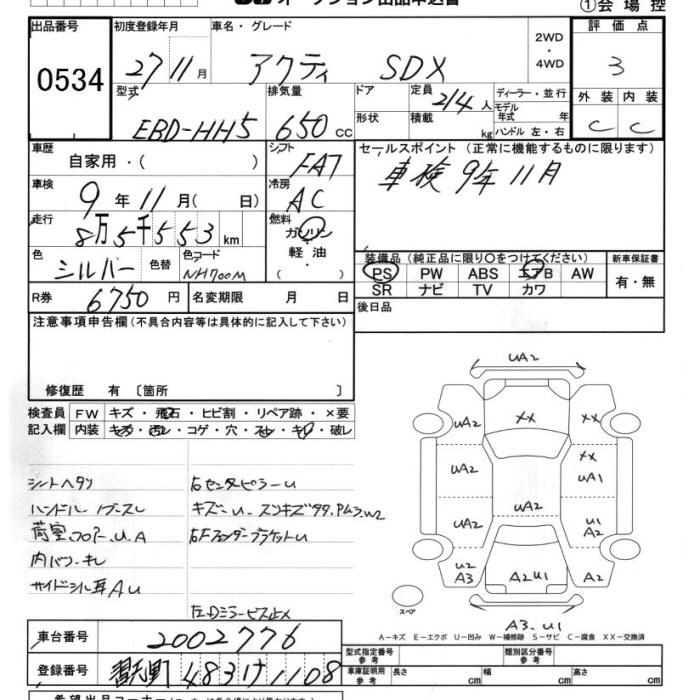 ①会場控
出品番号 0534
初度登録年月 27 11月
車名・グレード アクティ SDX
2WD・4WD
評価点 3
型式 EBD-HH5
排気量 650 CC
ドア 形状
定員 2/4 人
積載 kg
ディーラー・並行
モデル年式 年
ハンドル 左・右
外装 C 内装 C
車歴 自家用・( )
シフト FA7
セールスポイント(正常に機能するものに限ります)
車検9年11月
車検 9年11月( 日)
冷房 AC
走行 8万5千553km
燃料 ガソリン・軽油 ( )
色 シルバー 色替 色コード NH700M
装備品(純正品に限り○をつけてください)
新車保証書 有・無
PS PW ABS エアB AW
SR ナビ TV カワ
R券 6750 円 名変期限 月 日
後日品
注意事項申告欄(不具合内容等は具体的に記入して下さい)
修復歴 有 〔箇所 〕
検査員 FW キズ・飛石・ヒビ割・リペア跡・×要
記入欄 内装 キズ・汚レ・コゲ・穴・スレ・キレ・破レ
シートヘタリ 右センタピラーU
荷室フロアーU.A 右Fフェンダーブラケット U
内バンパーキレ
サイドシル耳AU
左Dミラービス止メ
UA2
UA2 XX XX A2
UA2 XX UA1
UA2 UA2 U1 A2
U2 A3 A2U1 A2
スペア
A3.U1
A-キズ E-エクボ U-凹み W-補修跡 S-サビ C-腐食 XX-交換済
車台番号 2002776
型式指定番号 参考 類別区分番号 参考
登録番号 483 け 1108
車庫証明用 参考 長さ cm 幅 cm 高さ cm